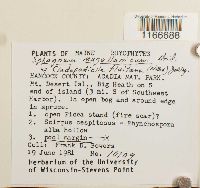 1166688
PLANTS OF MAINE BRYOPHYTES
Sphagnum magellanicum Brid.
HANCOCK COUNTY: ACADIA NAT. PARK.
Mt. Desert Cal., Big Heath on S
end of island (3 mi. S of Southwest
Harbor). In open bog and around edge
in spruce.
1. open Picea stand (fire scar)?
2. Scirpus cespitosus - Rhynchospora
alba hollow
3. pool margin
Coll: Frank D. Bowers
19 June 1981 No.
Herbarium of the University
of Wisconsin-Stevens Point